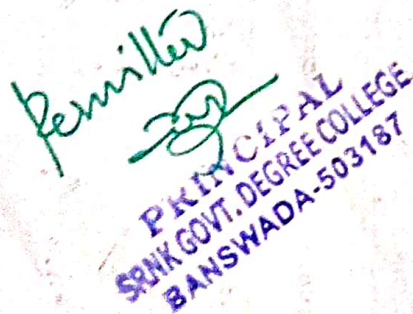 Permitted
PRINCIPAL
SRNK GOVT. DEGREE COLLEGE
BANSWADA-503187